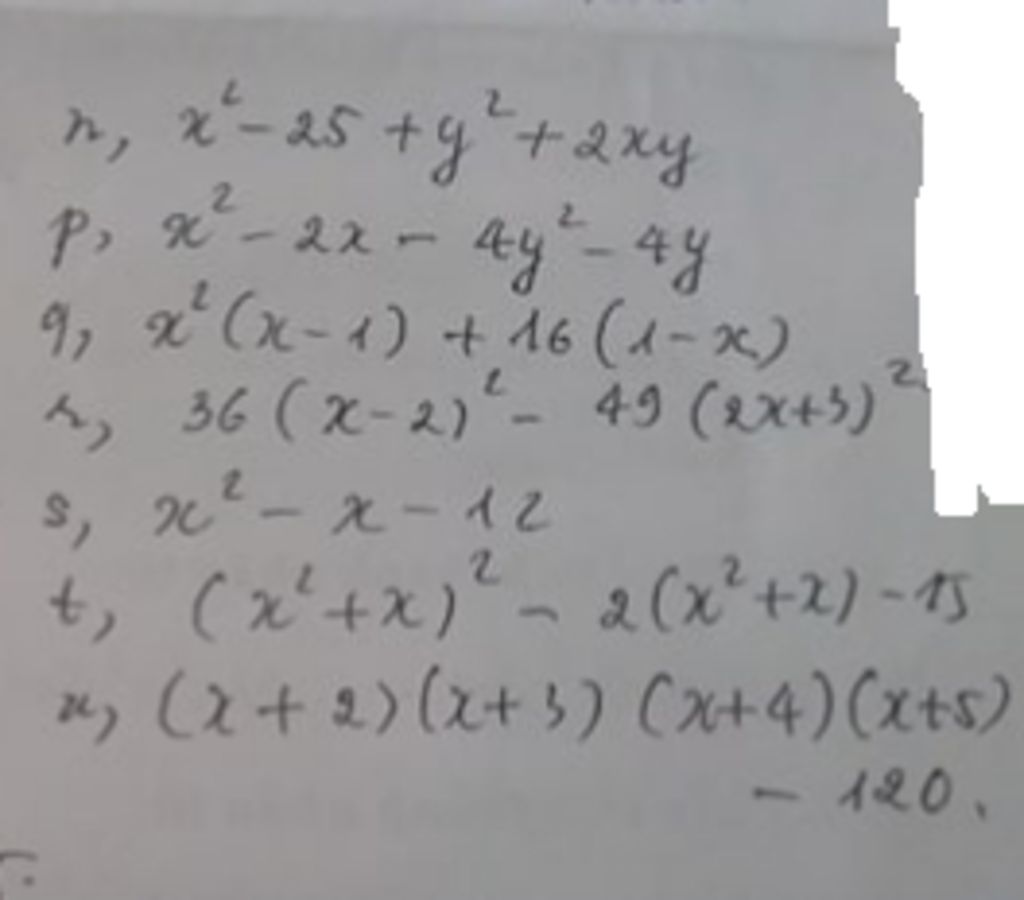 n, x² - 25 + y² + 2xy
p, x² - 2x - 4y² - 4y
q, x²(x - 1) + 16(1 - x)
r, 36(x - 2)² - 49(2x+3)²
s, x² - x - 12
t, (x²+x)² - 2(x²+x) - 15
u, (x + 2)(x+3)(x+4)(x+5)
- 120.